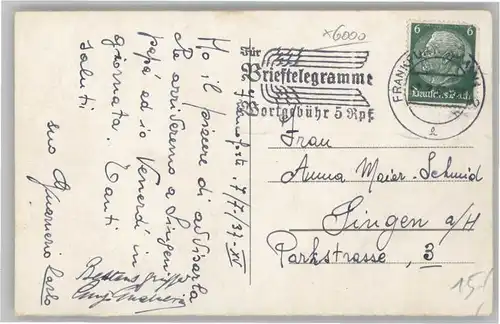 x6000
Für
Brieftelegramme
Wortgebühr 5 Rpf.
6 6
Deutsches Reich
FRANKFURT
Francoforte 7/7/37-XV
Ho il piacere di avvisarla
che arriveremo a Singen
papà ed io Venerdì in
giornata. Tanti
saluti
suo Guarnerio Carlo
Bestens grüsst
Frau
Anna Maier-Schmid
Singen a/H
Parkstrasse, 3
15